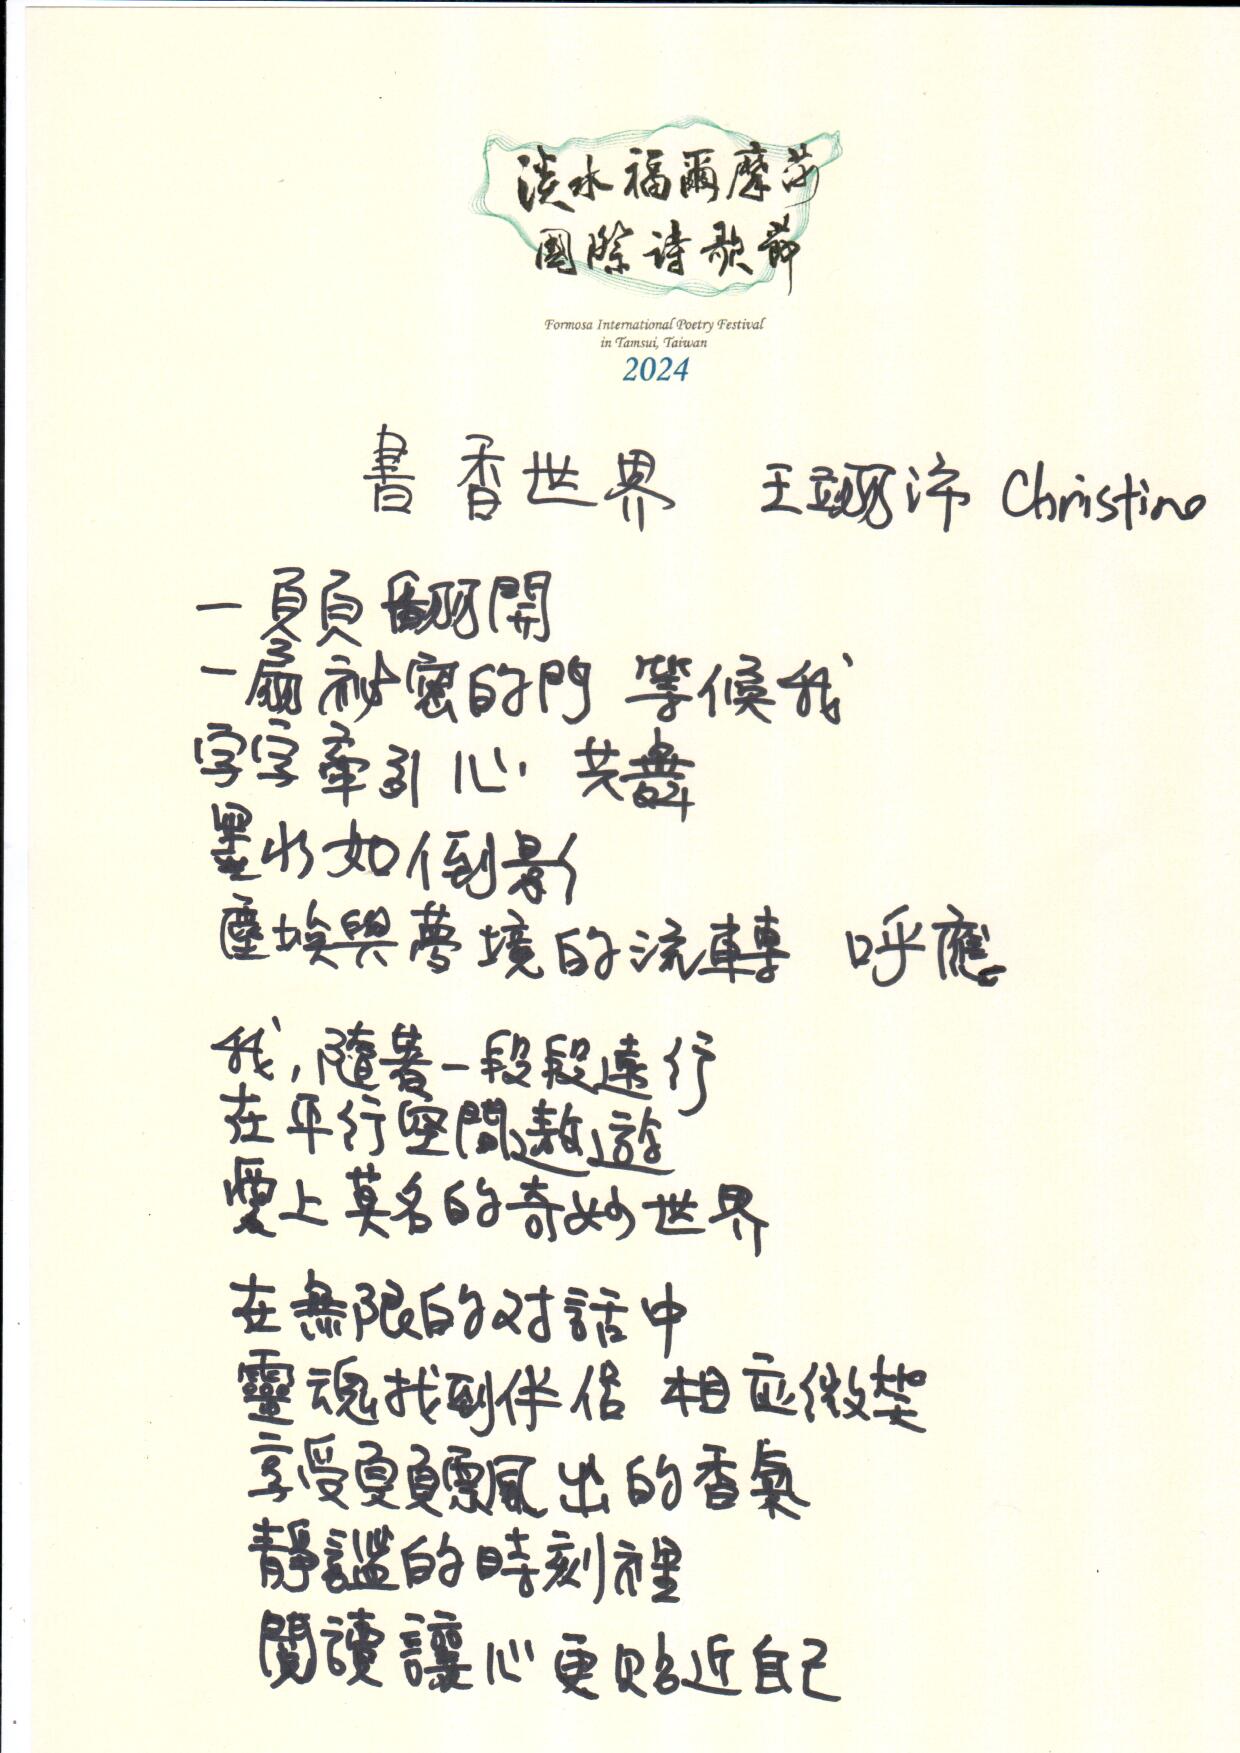 淡水福爾摩莎
國際詩歌節
Formosa International Poetry Festival
in Tamsui, Taiwan
2024
書香世界 王翊沛 Christine
一頁頁翻開
一扇祕密的門 等候我
字字牽引心 共舞
墨水如倒影
塵埃與夢境的流轉 呼應
我,隨著一段段遠行
在平行空間遨遊
愛上莫名的奇妙世界
在無限的对話中
靈魂找到伴侶 相应微笑
享受頁飄出的香氣
靜謐的時刻裡
閱讀讓心更貼近自己